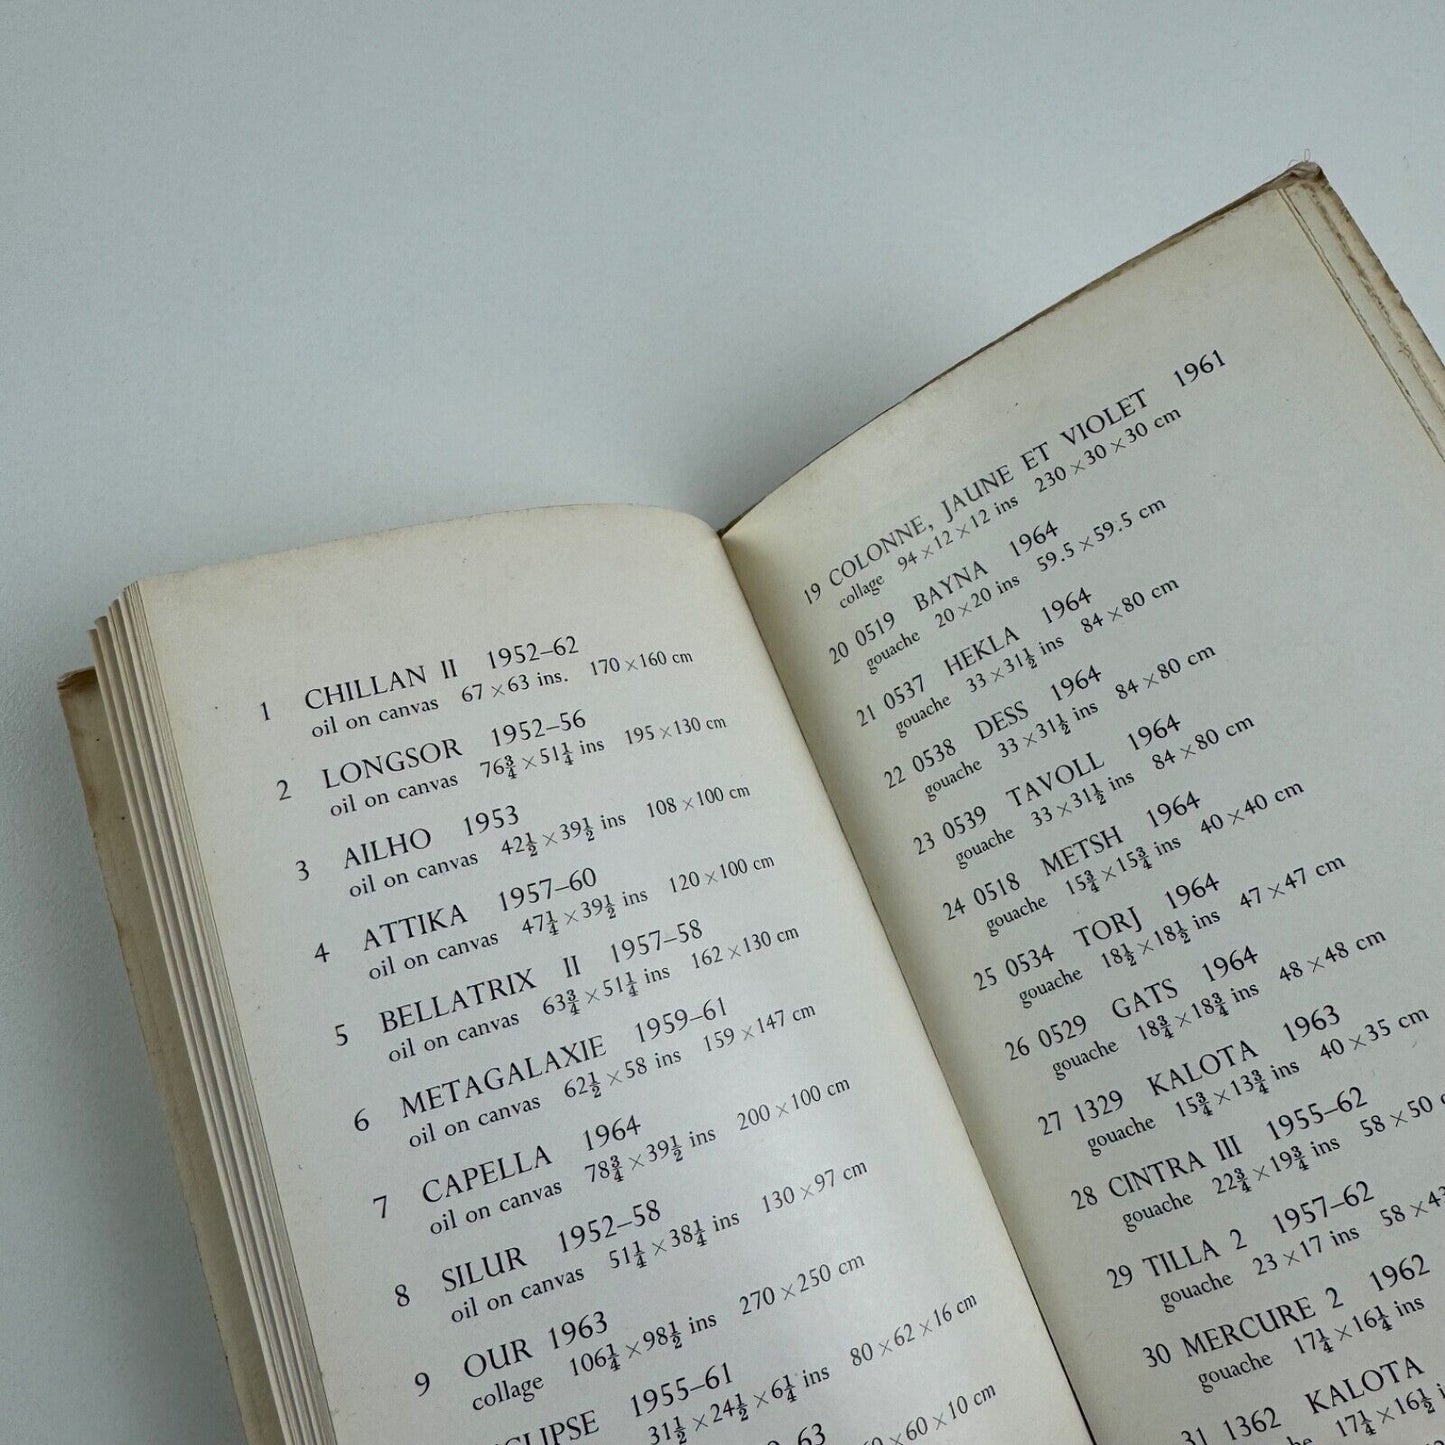 1 CHILLAN II 1952–62
oil on canvas 67×63 ins. 170×160 cm
2 LONGSOR 1952–56
oil on canvas 76¾×51¼ ins 195×130 cm
3 AILHO 1953
oil on canvas 42½×39½ ins 108×100 cm
4 ATTIKA 1957–60
oil on canvas 47¼×39½ ins 120×100 cm
5 BELLATRIX II 1957–58
oil on canvas 63¾×51¼ ins 162×130 cm
6 METAGALAXIE 1959–61
oil on canvas 62½×58 ins 159×147 cm
7 CAPELLA 1964
oil on canvas 78¾×39½ ins 200×100 cm
8 SILUR 1952–58
oil on canvas 51¼×38¼ ins 130×97 cm
9 OUR 1963
collage 106¼×98½ ins 270×250 cm
1955–61
31½×24½×6¼ ins 80×62×16 cm
63
×60×10 cm
19 COLONNE, JAUNE ET VIOLET 1961
collage 94×12×12 ins 230×30×30 cm
20 0519 BAYNA 1964
gouache 20×20 ins 59.5×59.5 cm
21 0537 HEKLA 1964
gouache 33×31½ ins 84×80 cm
22 0538 DESS 1964
gouache 33×31½ ins 84×80 cm
23 0539 TAVOLL 1964
gouache 33×31½ ins 84×80 cm
24 0518 METSH 1964
gouache 15¾×15¾ ins 40×40 cm
25 0534 TORJ 1964
gouache 18½×18½ ins 47×47 cm
26 0529 GATS 1964
gouache 18¾×18¾ ins 48×48 cm
27 1329 KALOTA 1963
gouache 15¾×13¾ ins 40×35 cm
28 CINTRA III 1955–62
gouache 22¾×19¾ ins 58×50
29 TILLA 2 1957–62
gouache 23×17 ins 58×43
30 MERCURE 2 1962
gouache 17¼×16¼ ins
31 1362 KALOTA
17¼×16½